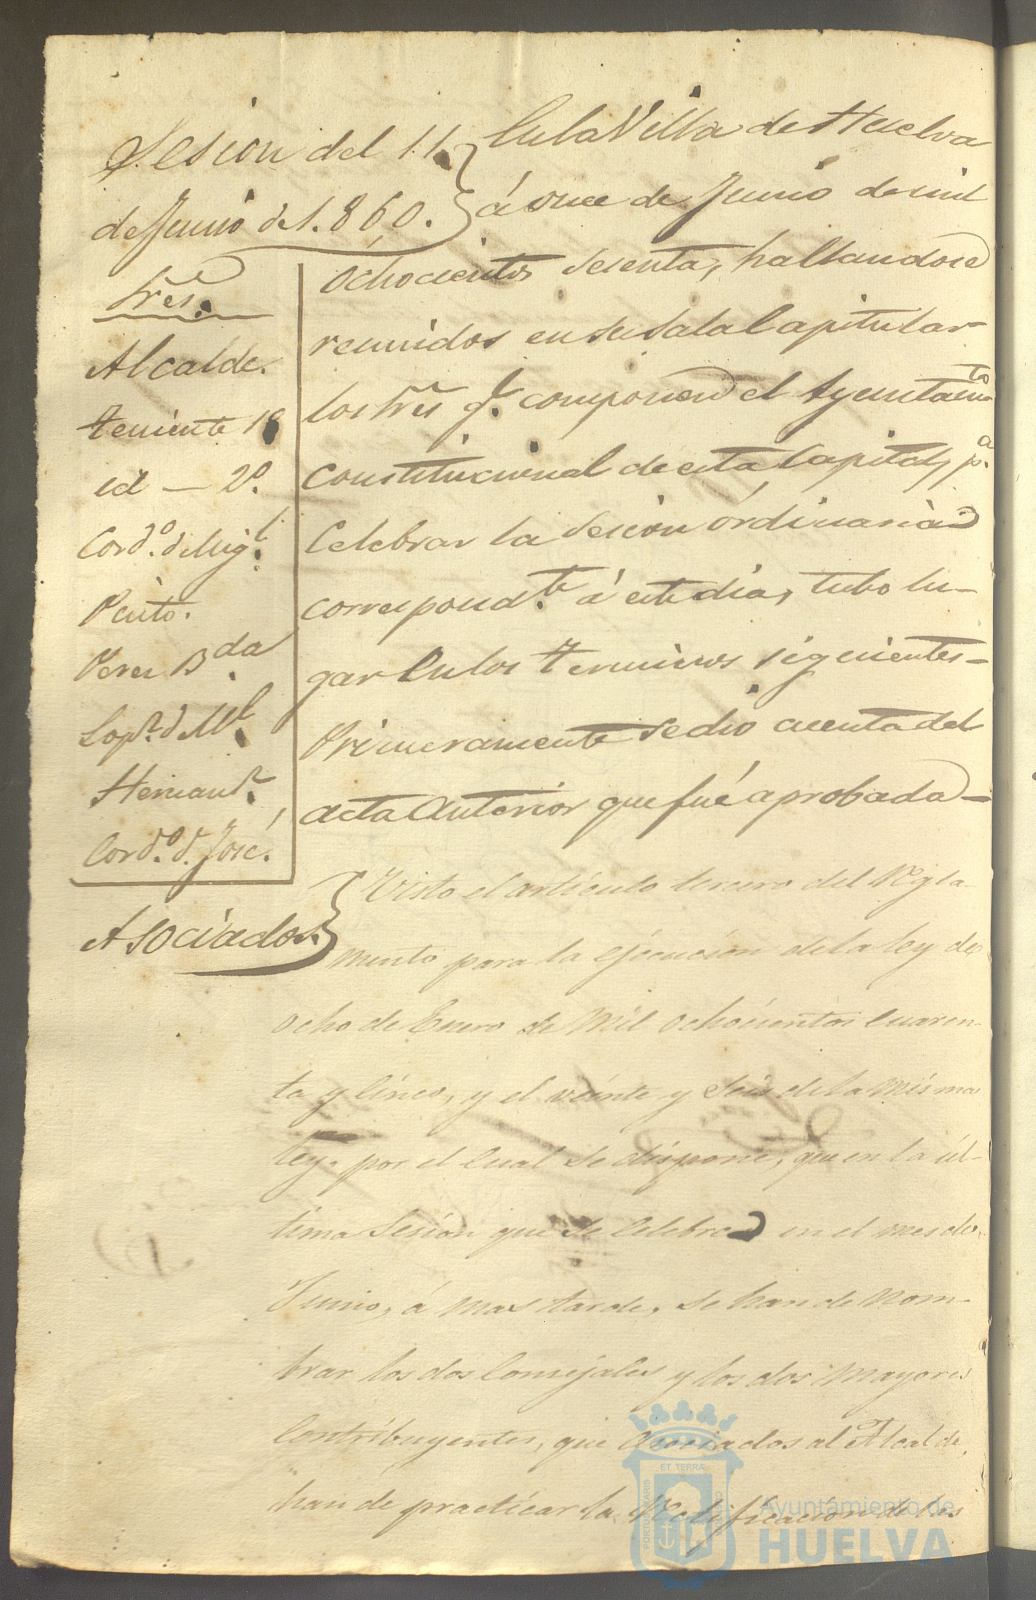 Sesion del 11
de Junio de 1.860.
Sres.
Alcalde.
teniente 1º
id — 2º.
Cord.º d Mig.l
Pinto.
Perez B.da
Lop.z d M.l
Hernand.z
Cord.º d. José.
Asociados.
En la Villa de Huelva
á once de Junio de mil
ochocientos sesenta, hallandose
reunidos en su Sala Capitular
los Sres q.e componen el Ayuntam.to
Constitucional de esta Capital, p.a
Celebrar la sesion órdinaria
correspond.te á este dia, tubo lu-
gar en los terminos siguientes-
Primeramente se dió cuenta del
acta anterior que fué aprobada-
Visto el artículo tercero del Regla-
mento para la ejecucion de la ley de
ocho de Enero de Mil ochocientos cuaren-
ta y cinco, y el veinte y seis de la misma
ley. por el cual se dispone, que en la úl-
tima sesion que se celebre en el mes de
Junio, á mas tarde, se han de nom-
brar los dos Concejales y los dos Mayores
Contribuyentes, que Asociados al Alcalde,
han de practicar la Retificacion de las
ET TERRÆ
Ayuntamiento de
HUELVA